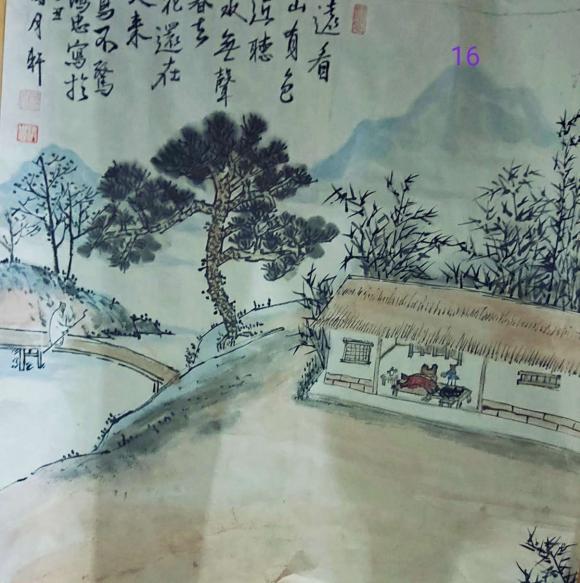 遠看
山有色
近聽
水無聲
春去
花還在
人來
鳥不驚
忠寫於
月軒
16